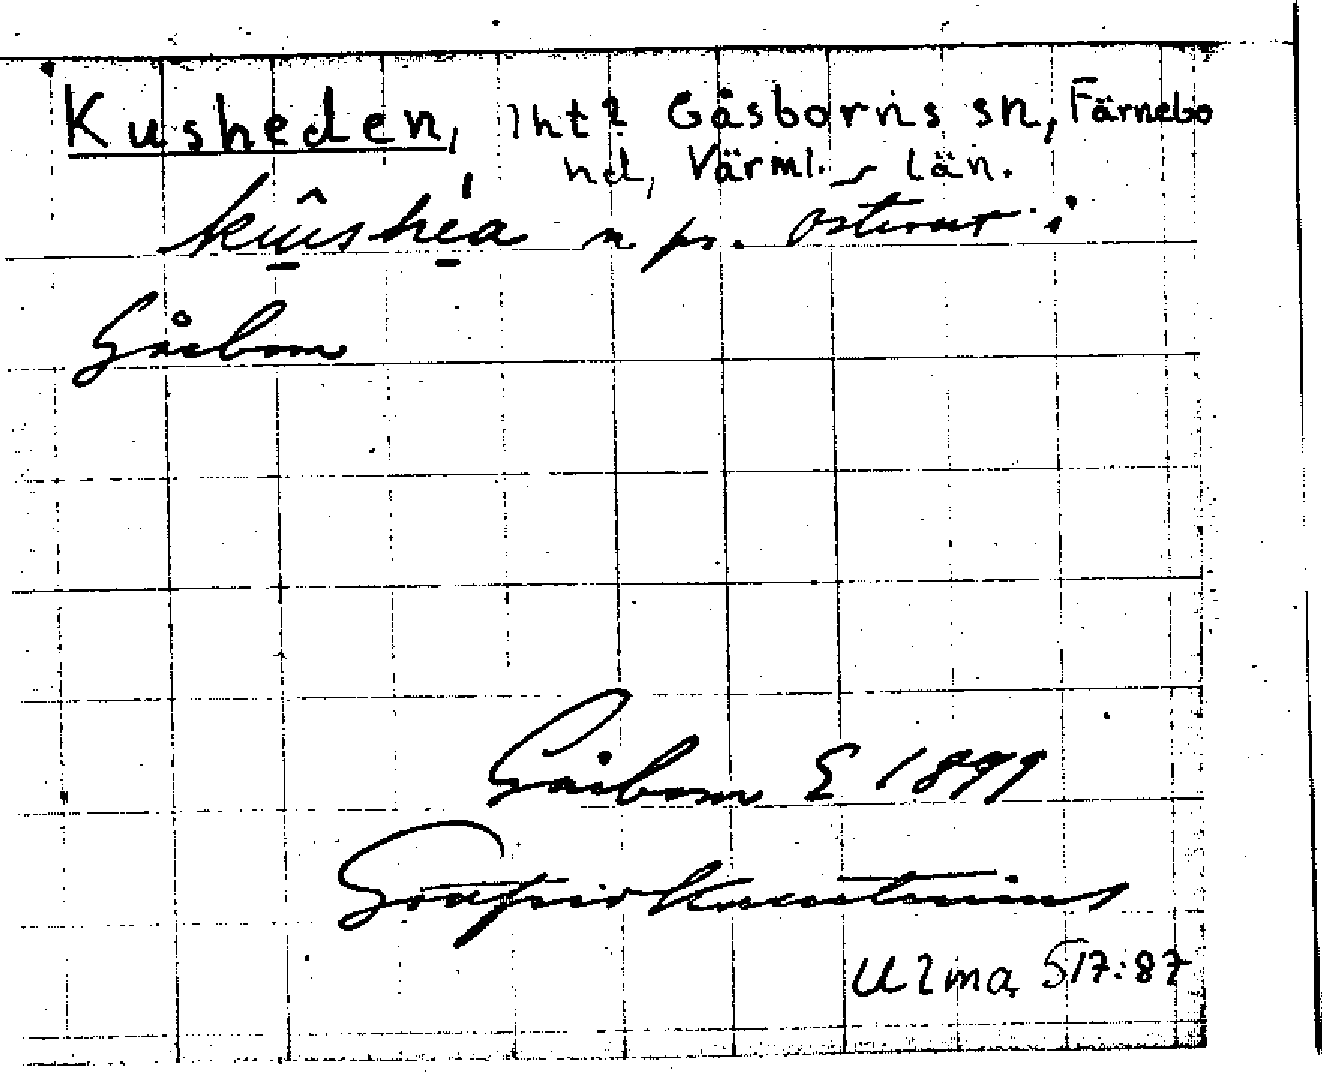 Kusheden, Iht? Gåsborns sn, Färnebo
hd, Värml. län.
kûshéa n pr. österut i
Gåsborn
Gåsborn S 1899
Gottfrid Kallstenius
Ulma 517:87